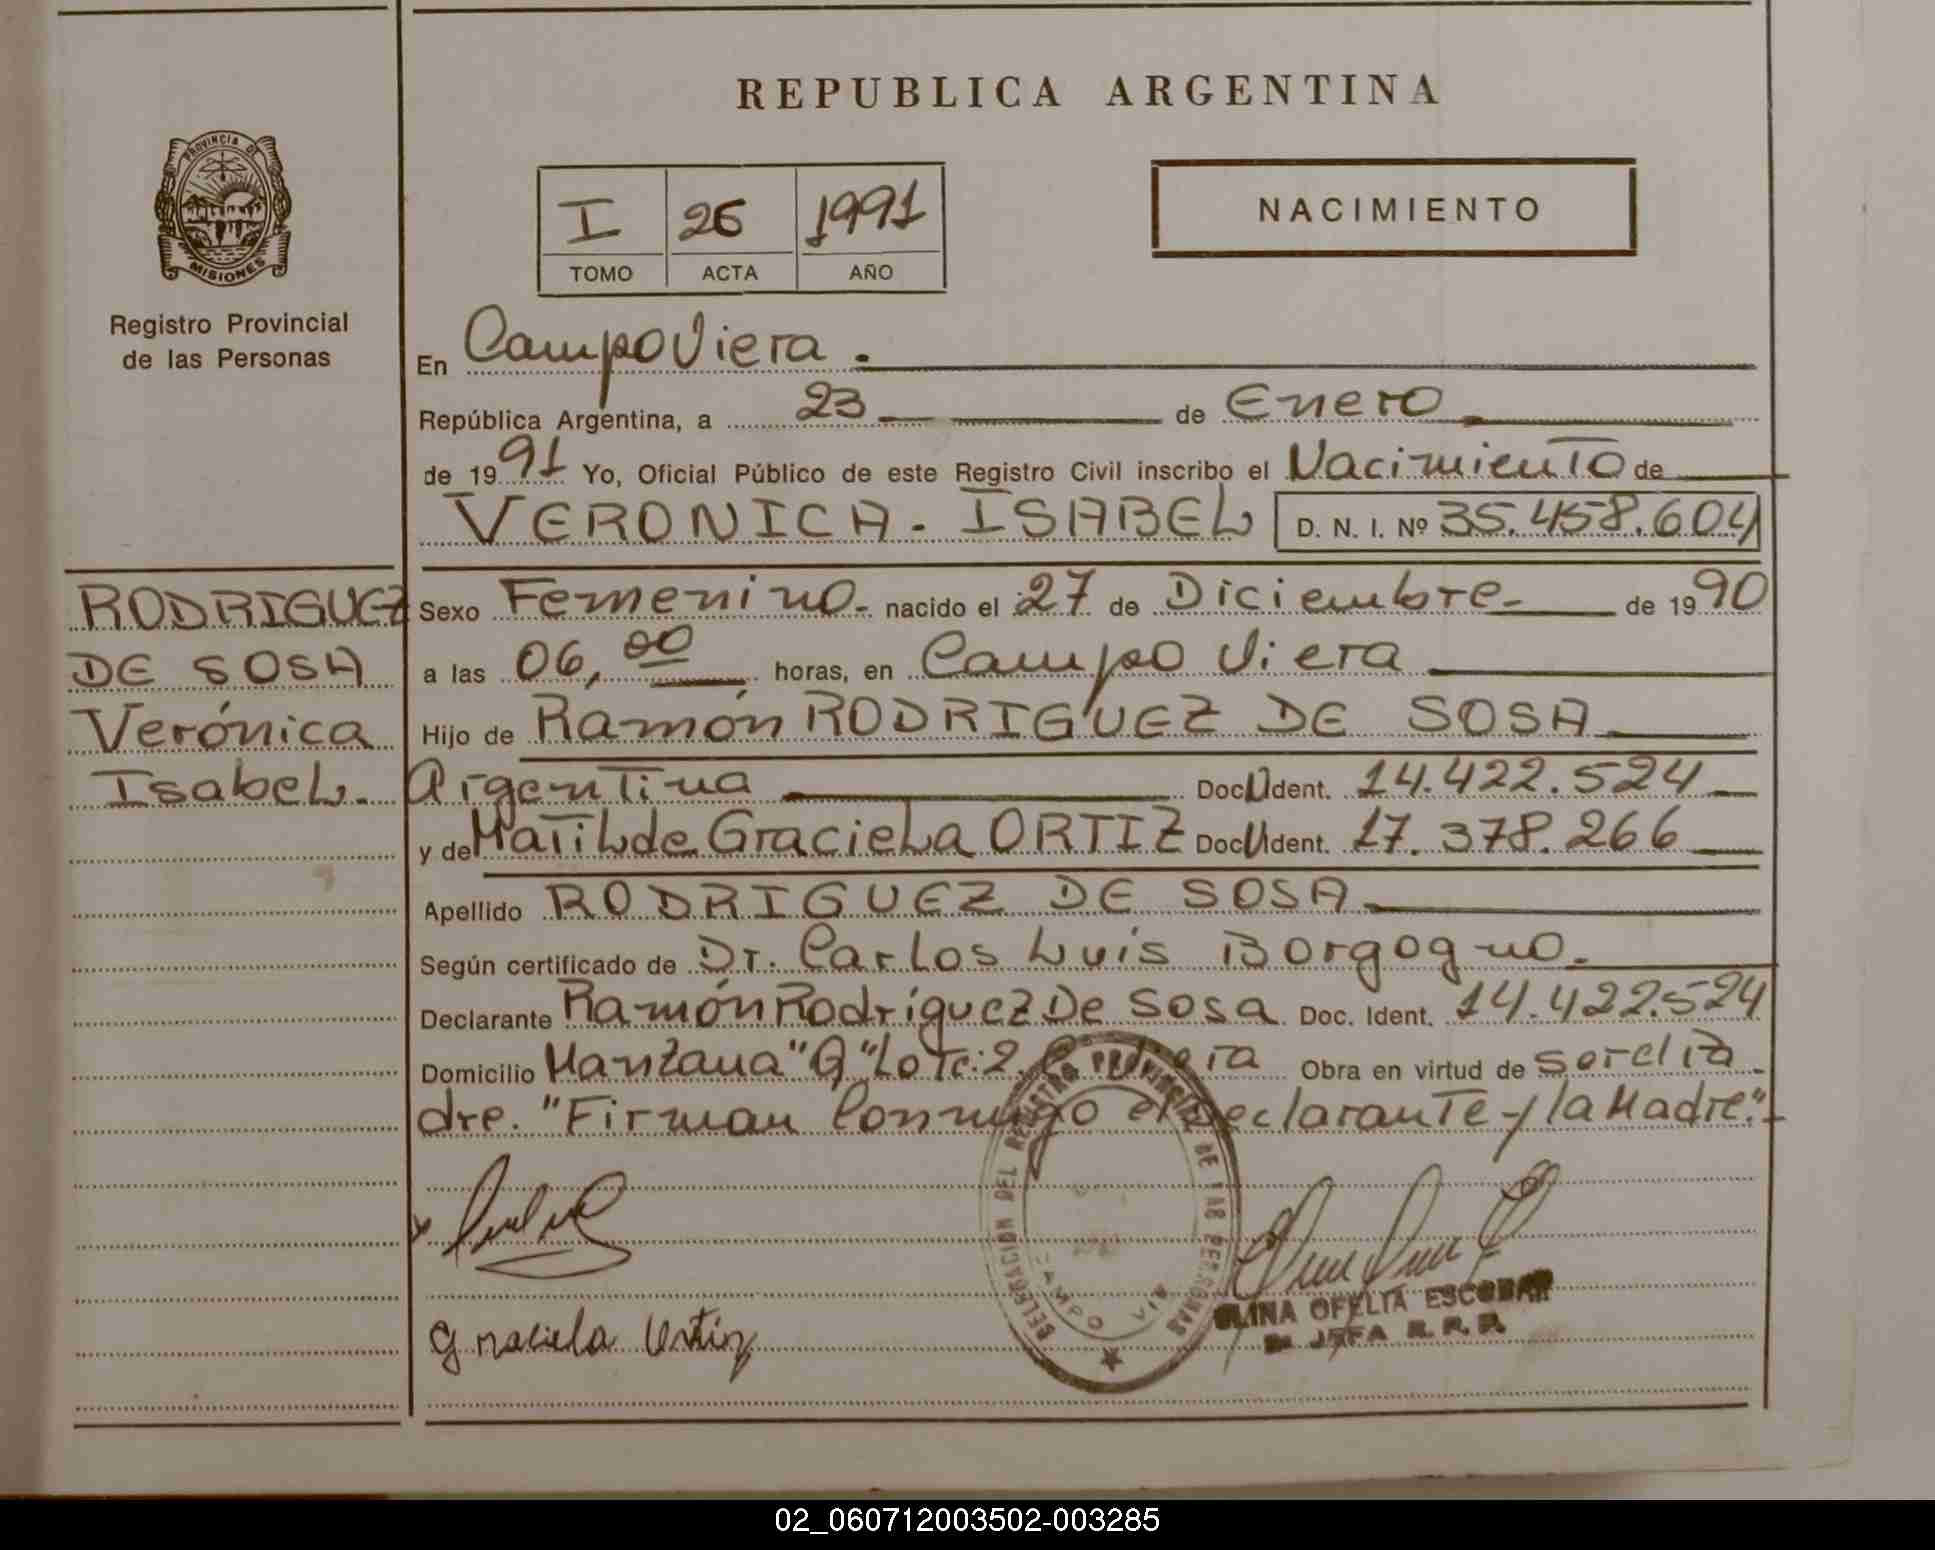 REPUBLICA ARGENTINA
PROVINCIA DE
MISIONES
Registro Provincial
de las Personas
I 26 1991
TOMO ACTA AÑO
NACIMIENTO
En Campo Viera.
República Argentina, a 23 de Enero
de 1991 Yo, Oficial Público de este Registro Civil inscribo el Nacimiento de
VERONICA. ISABEL D. N. I. Nº 35.458.604
RODRIGUEZ
DE SOSA
Verónica
Isabel.
Sexo Femenino. nacido el 27 de Diciembre. de 1990
a las 06,00 horas, en Campo Viera
Hijo de Ramón RODRIGUEZ DE SOSA
Argentina DocUIdent. 14.422.524
y de Matilde Graciela ORTIZ DocUIdent. 17.378.266
Apellido RODRIGUEZ DE SOSA
Según certificado de Dr. Carlos Luis Borgogno.
Declarante Ramón Rodríguez De Sosa Doc. Ident. 14.422.524
Domicilio Manzana "G" Lote:2. Obra en virtud de ser el Pa
dre. "Firman Conmigo el Declarante y la Madre".
Graciela Ortiz
DELEGACION DEL REGISTRO PROVINCIAL DE LAS PERSONAS
CAMPO
OFELIA ESCOBAR
JEFA R. P. P.
02_060712003502-003285